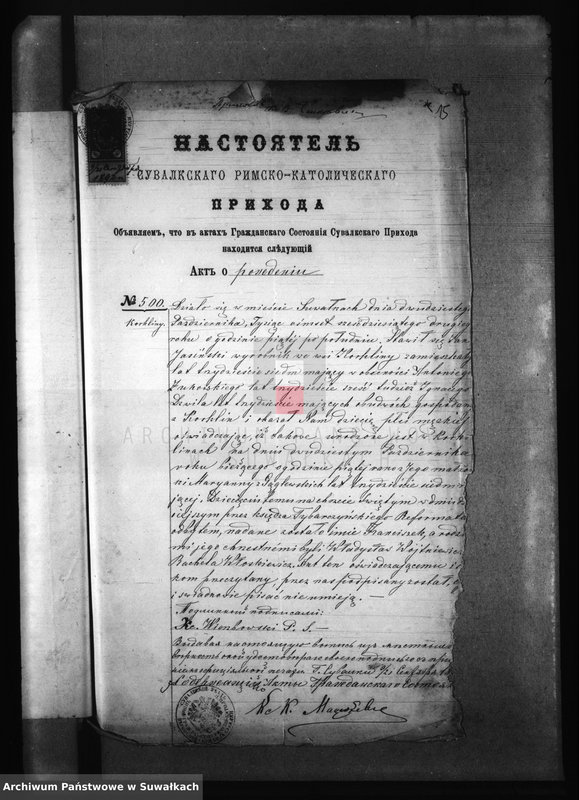 15
НАСТОЯТЕЛЬ
СУВАЛКСКАГО РИМСКО-КАТОЛИЧЕСКАГО
ПРИХОДА
Объявляем, что въ актахъ Гражданскаго Состоянія Сувалкскаго Прихода
находится слѣдующій
Актъ о рожденіи
№ 500.
Korkliny.
Działo się w mieście Suwałkach dnia dwudziestego
Października, Tysiąc ośmset sześćdziesiątego drugiego
roku o godzinie piątej po południu. Stawił się Jan
Jasiński wyrobnik we wsi Korkliny zamieszkały
lat trzydzieście siedm mający w obecności Antoniego
Żukowskiego lat trzydzieście sześć tudzież Ignacego
lat trzydzieście mających obydwóch gospodarzy
z Korklin i okazał Nam dziecię płci męzkiej
oświadczając, iż takowe urodzone jest w Kork-
linach na dniu dwudziestym Października
roku bieżącego o godzinie piątej rano z Jego małżon-
ki Maryanny z lat trzydzieście siedm ma-
jącej. Dziecięciu temu na chrzcie świętym w dniu dzi-
siejszym przez księdza Tybarczyńskiego Reformata
odbytem, nadane zostało imie Franciszek, a rodzica-
mi jego chrzestnemi byli Władysław Wojtniewicz
Rachela Włoskiewicz. Akt ten oświadczającemu i świad-
kom przeczytany, przez nas podpisany został, gdyż
i świadkowie pisać nie umieją. —
Подлинный подписали:
X. Wierzbowski P. S. —
Выдавая настоящую вопись изъ
г. Сувалки
Акты Гражданскаго Состоян
Кс К.
ARCH
Archiwum Państwowe w Suwałkach